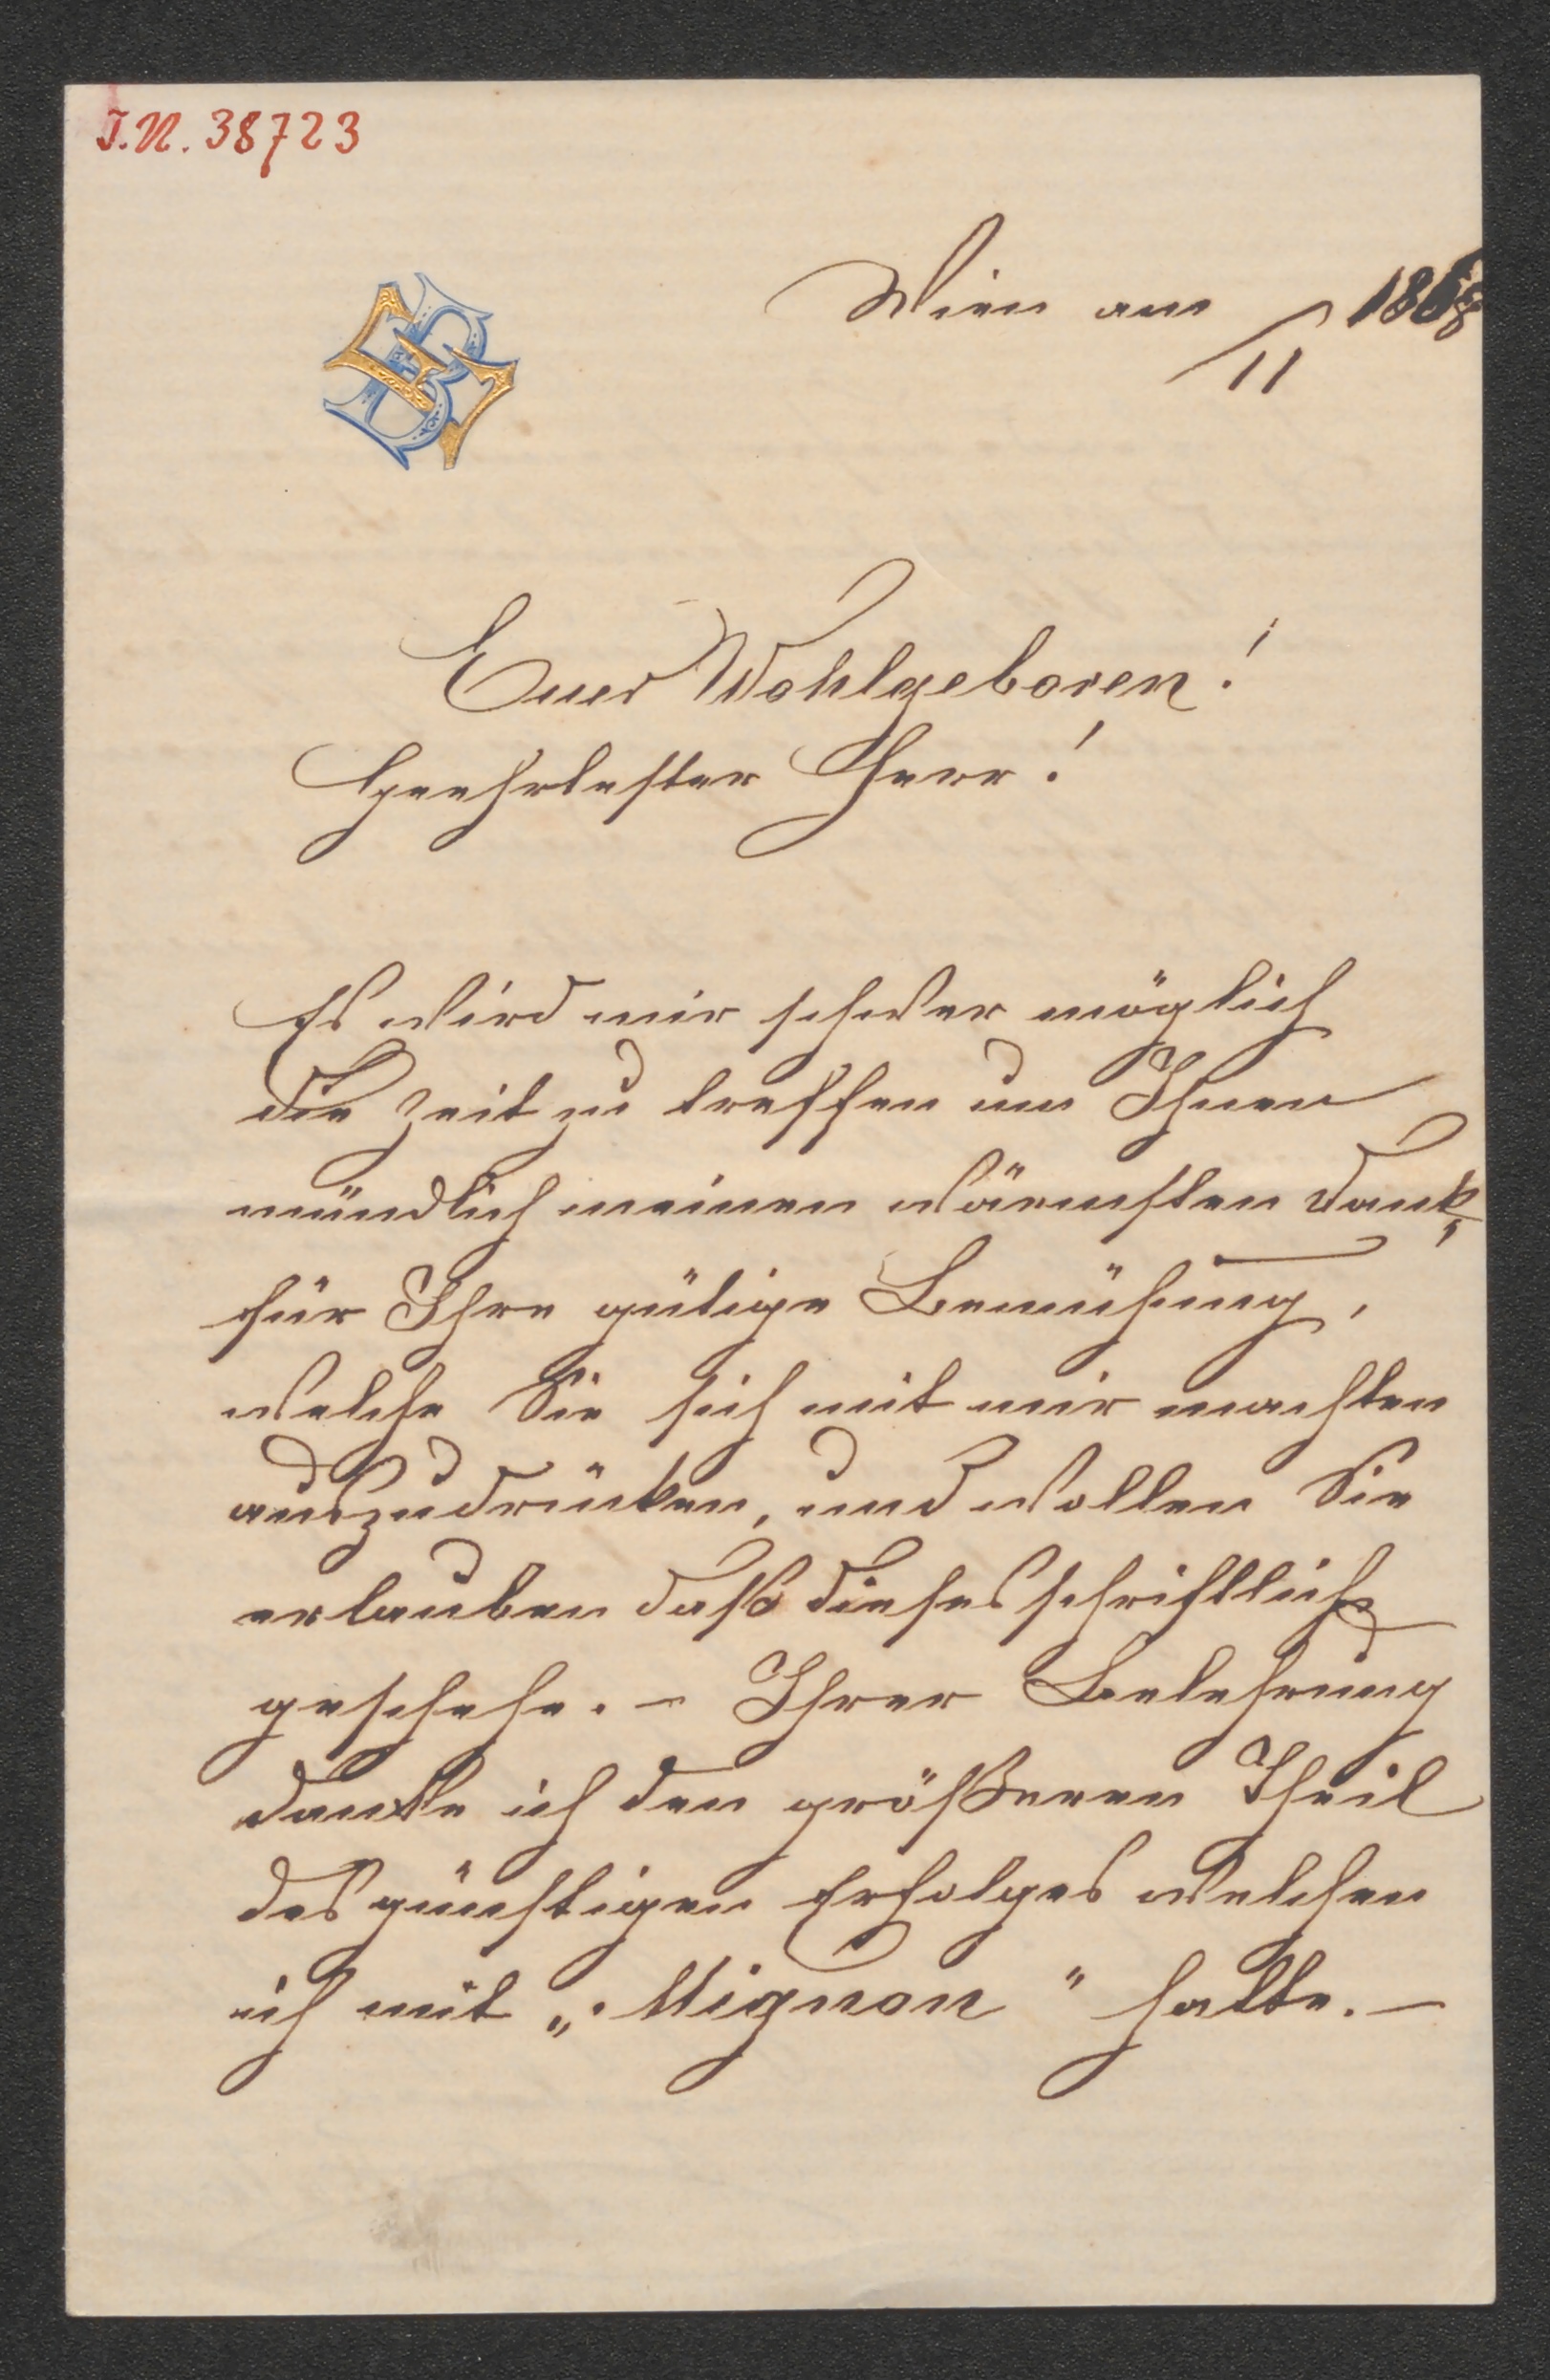 I.N. 38723
Wien am /11 1868
Euer Wohlgeboren!
Geehrtester Herr!
Es wird mir schwer möglich
die Zeit zu treffen um Ihnen
mündlich meinen wärmsten Dank,
für Ihre gütige Bemühung,
welche Sie sich mit mir machten
auszudrücken, und wollen Sie
erlauben daß dieses schriftlich
geschehe. – Ihrer Belehrung
danke ich den größeren Theil
des günstigen Erfolges welchen
ich mit „Mignon" hatte. –